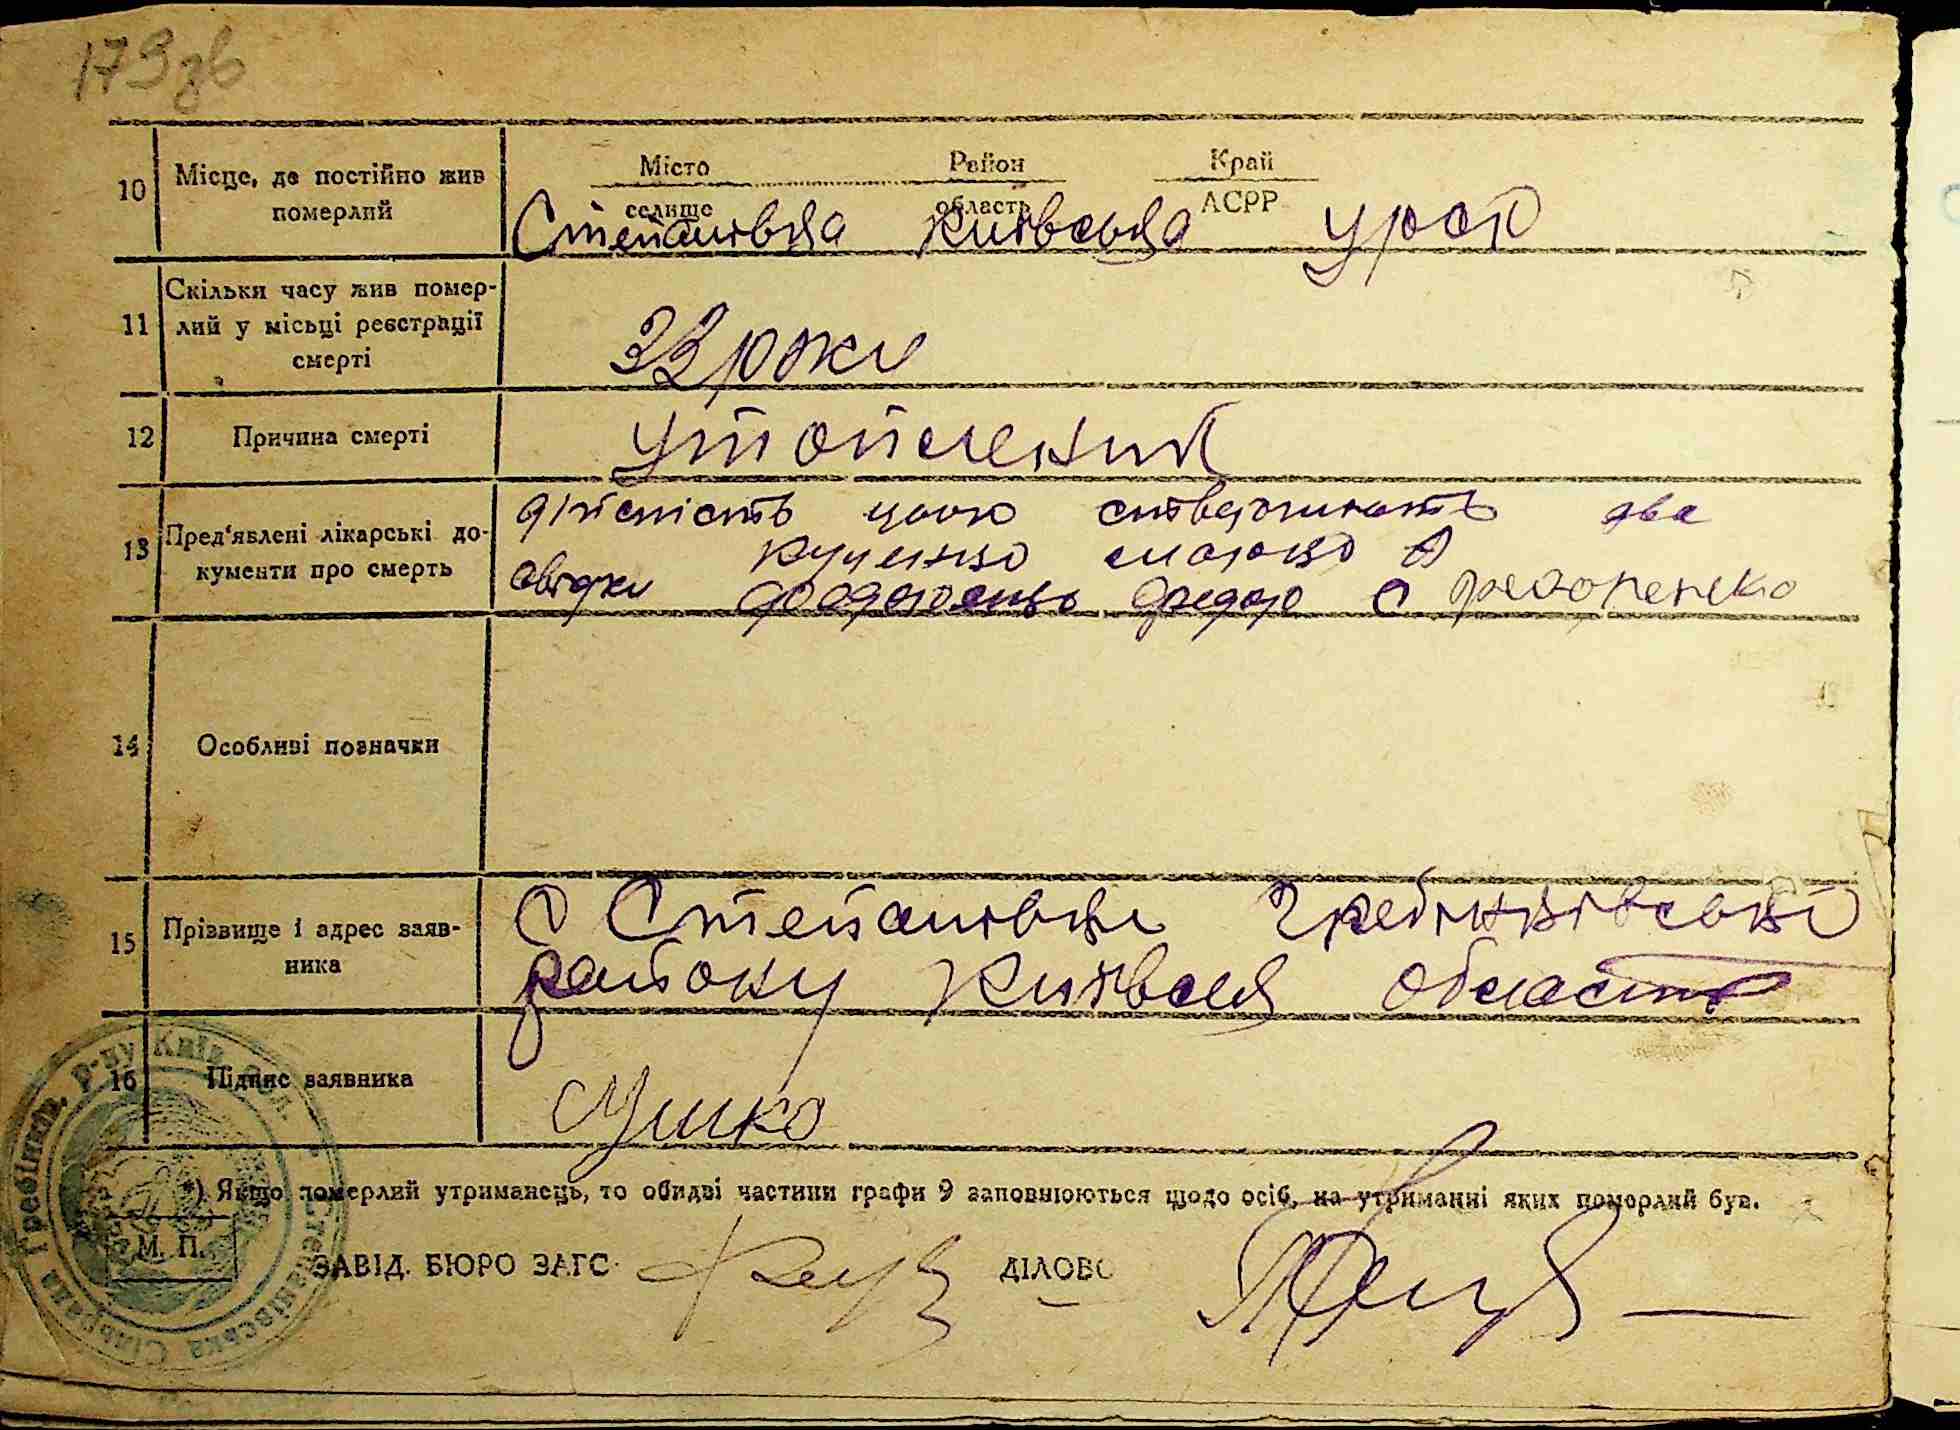 173зв
Місто Район Край
10 Місце, де постійно жив
померлий
селище область АСРР
Степанівка Київська УРСР
11 Скільки часу жив помер-
лий у місьці реєстрації
смерті
33 роки
12 Причина смерті
утоплений
13 Пред'явлені лікарські до-
кументи про смерть
дійсність цього стверджують два
свідки
14 Особливі позначки
15 Прізвище і адрес заяв-
ника
с Степанівки Гребінківський
району Київської області
16 Підпис заявника
Сушко
*) Якщо померлий утриманець, то обидві частини графи 9 заповнюються щодо осіб, на утриманні яких померлий був.
М. П.
ЗАВІД. БЮРО ЗАГС
ДІЛОВО
Степанівська Сільрада Гребінків. р-ну Київ. обл.